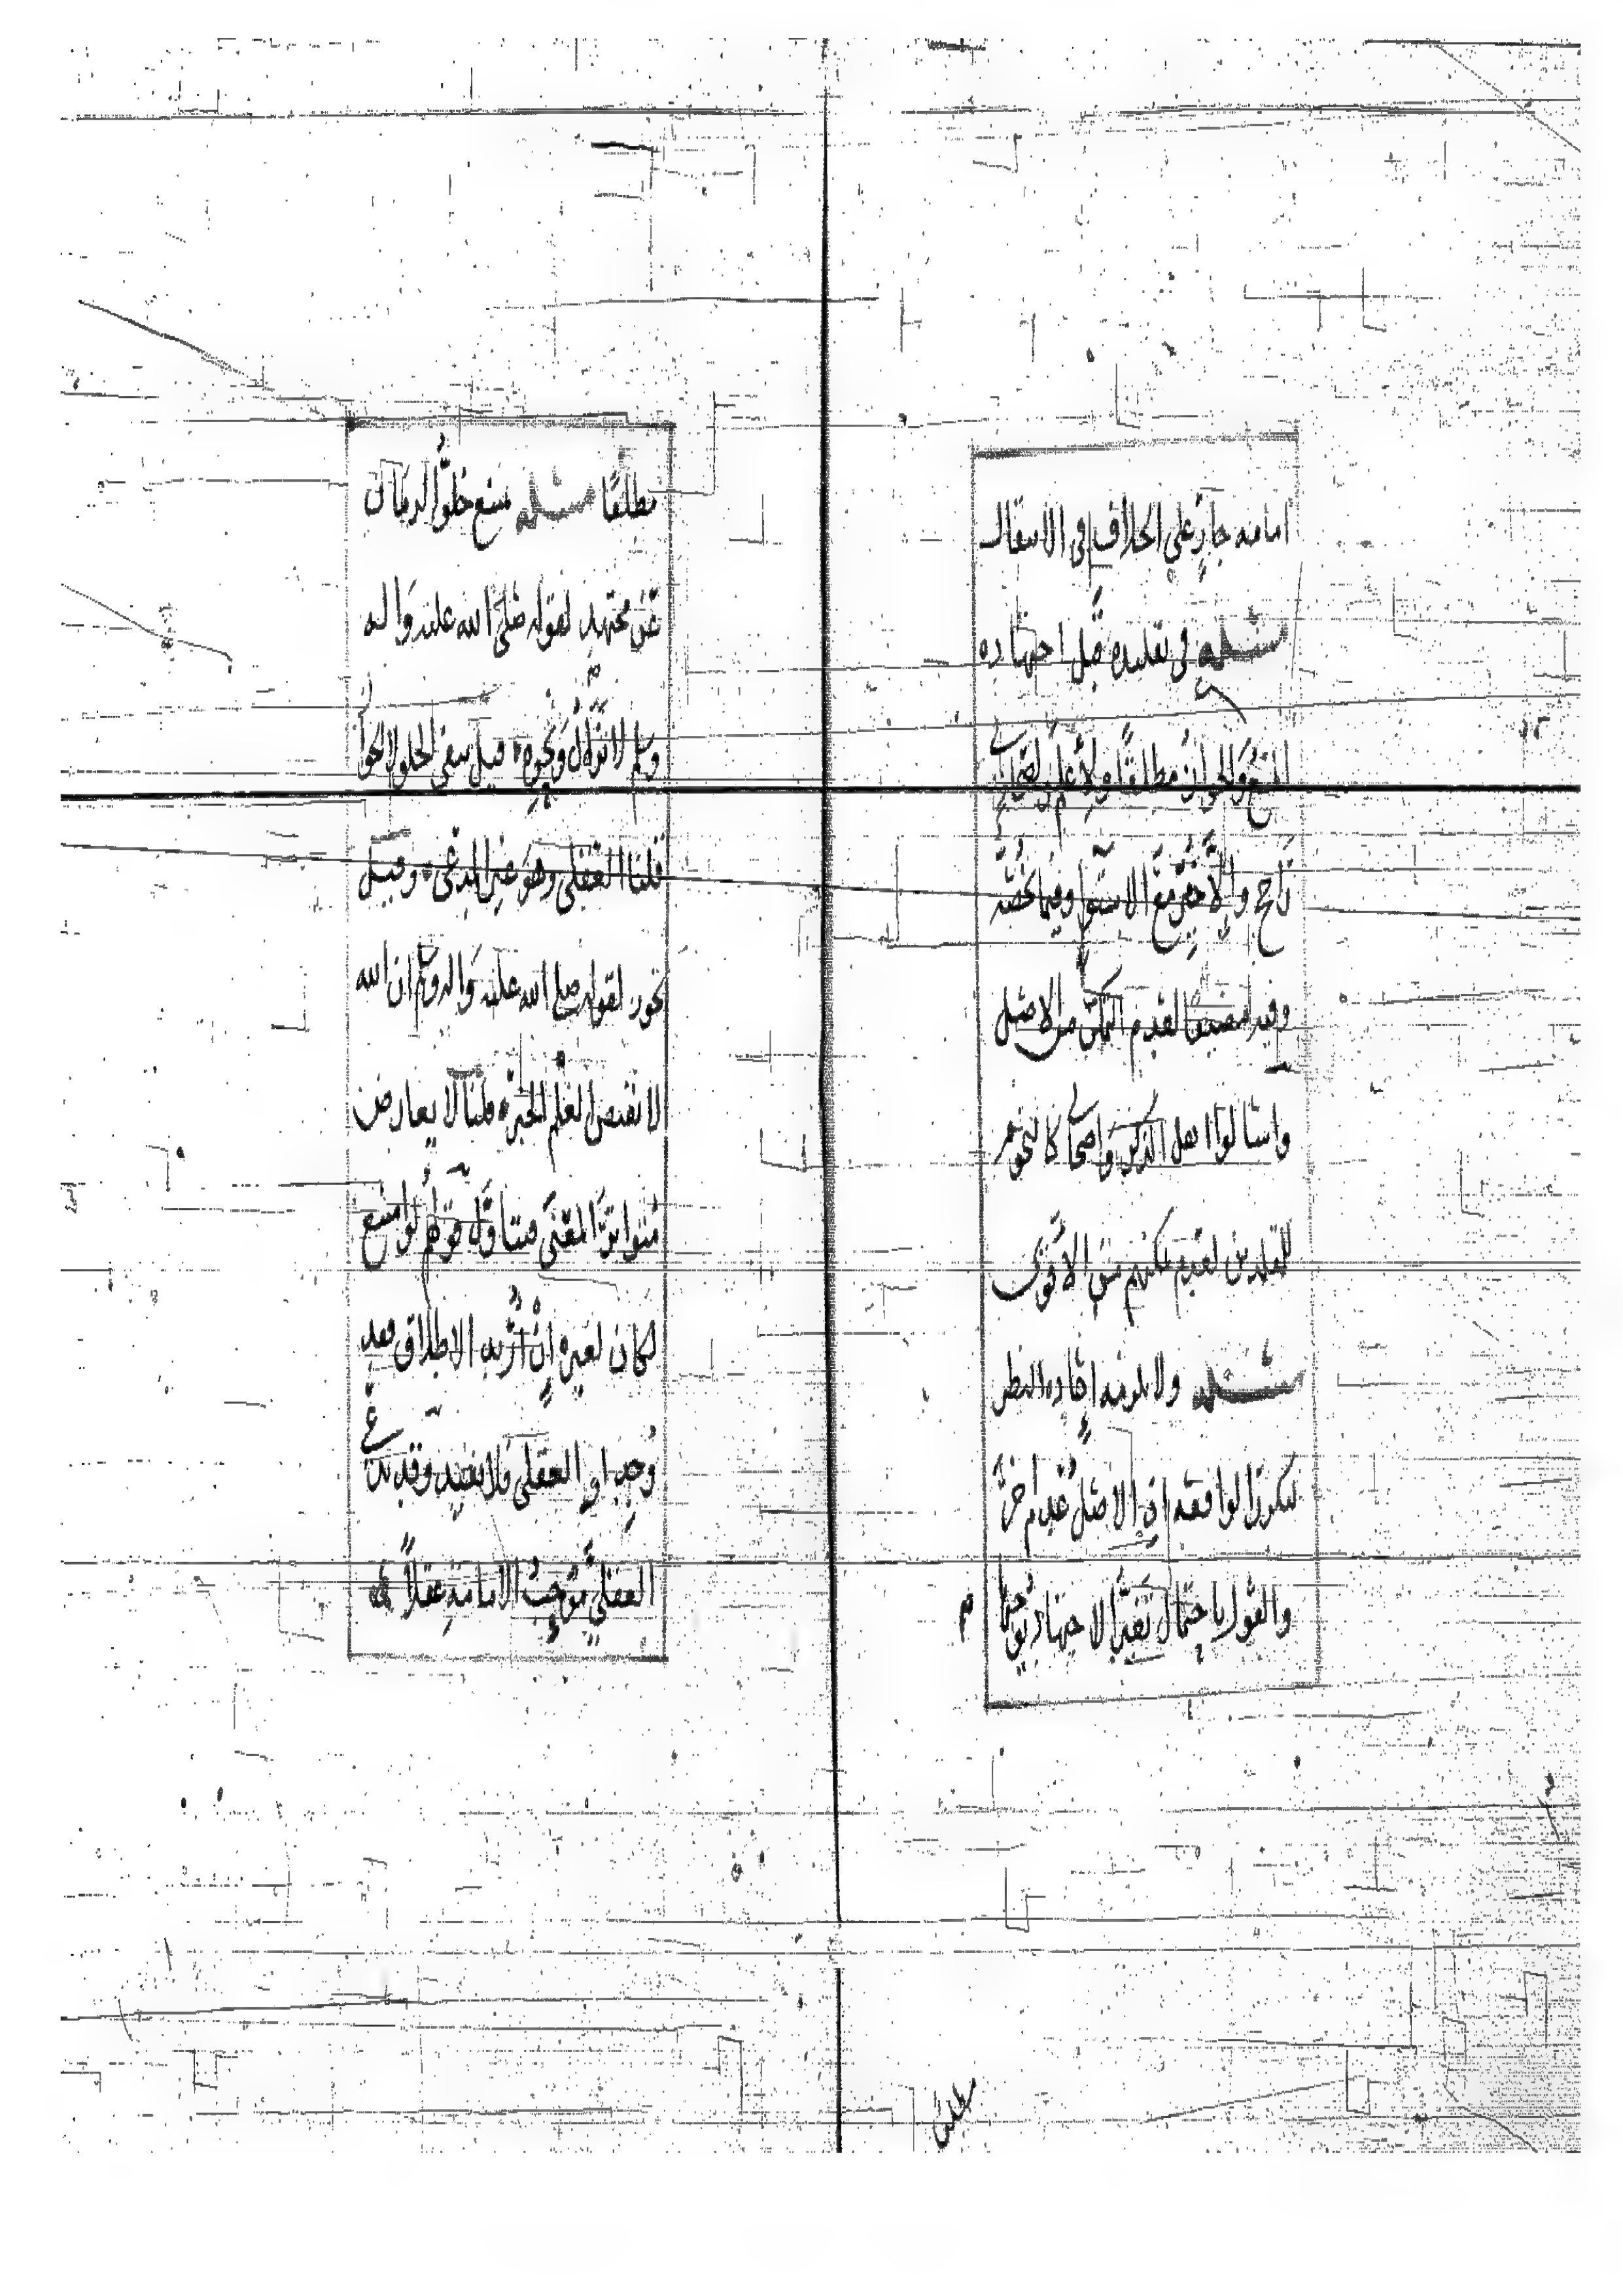 امامه جارٍ علي الخلاف في الاسفال
مسئلة في تقليده قبل اجتهاده
المنع والجواز مطلقًا ولأعلم
راجح والا خير مع الاستوا وفيما يخصه
وقيد لعدم التمكن من الاصل
واسالوا اهل الذكر
للمقلدين لعدم تمكنهم من الاقوى
مسئلة ولا يلزمه اعادة النظر
لتكرر الواقعة اذ الاصل عدم اخر
والقول باحتمال تغير الاجتهاد يوجبها
مطلقًا مسئلة منع خلو الزمان
عن مجتهد لقوله صلى الله عليه واله
وسلم لا تزال ونحوه قيل ينفى الخلو لا الجواز
قلنا العقلى وهو غير المدعى وقيل
يجوز لقوله صلى الله عليه واله وسلم ان الله
لا يقبض العلم الخبر قلنا لا يعارض
متواتر المعنى فيتاول قولهم لو امتنع
لكان لغيره ان اريد الاطلاق فقد
وجد او العقلى فلا يفيد وقد يدعى
العقلي موجب الامامة عقلاً